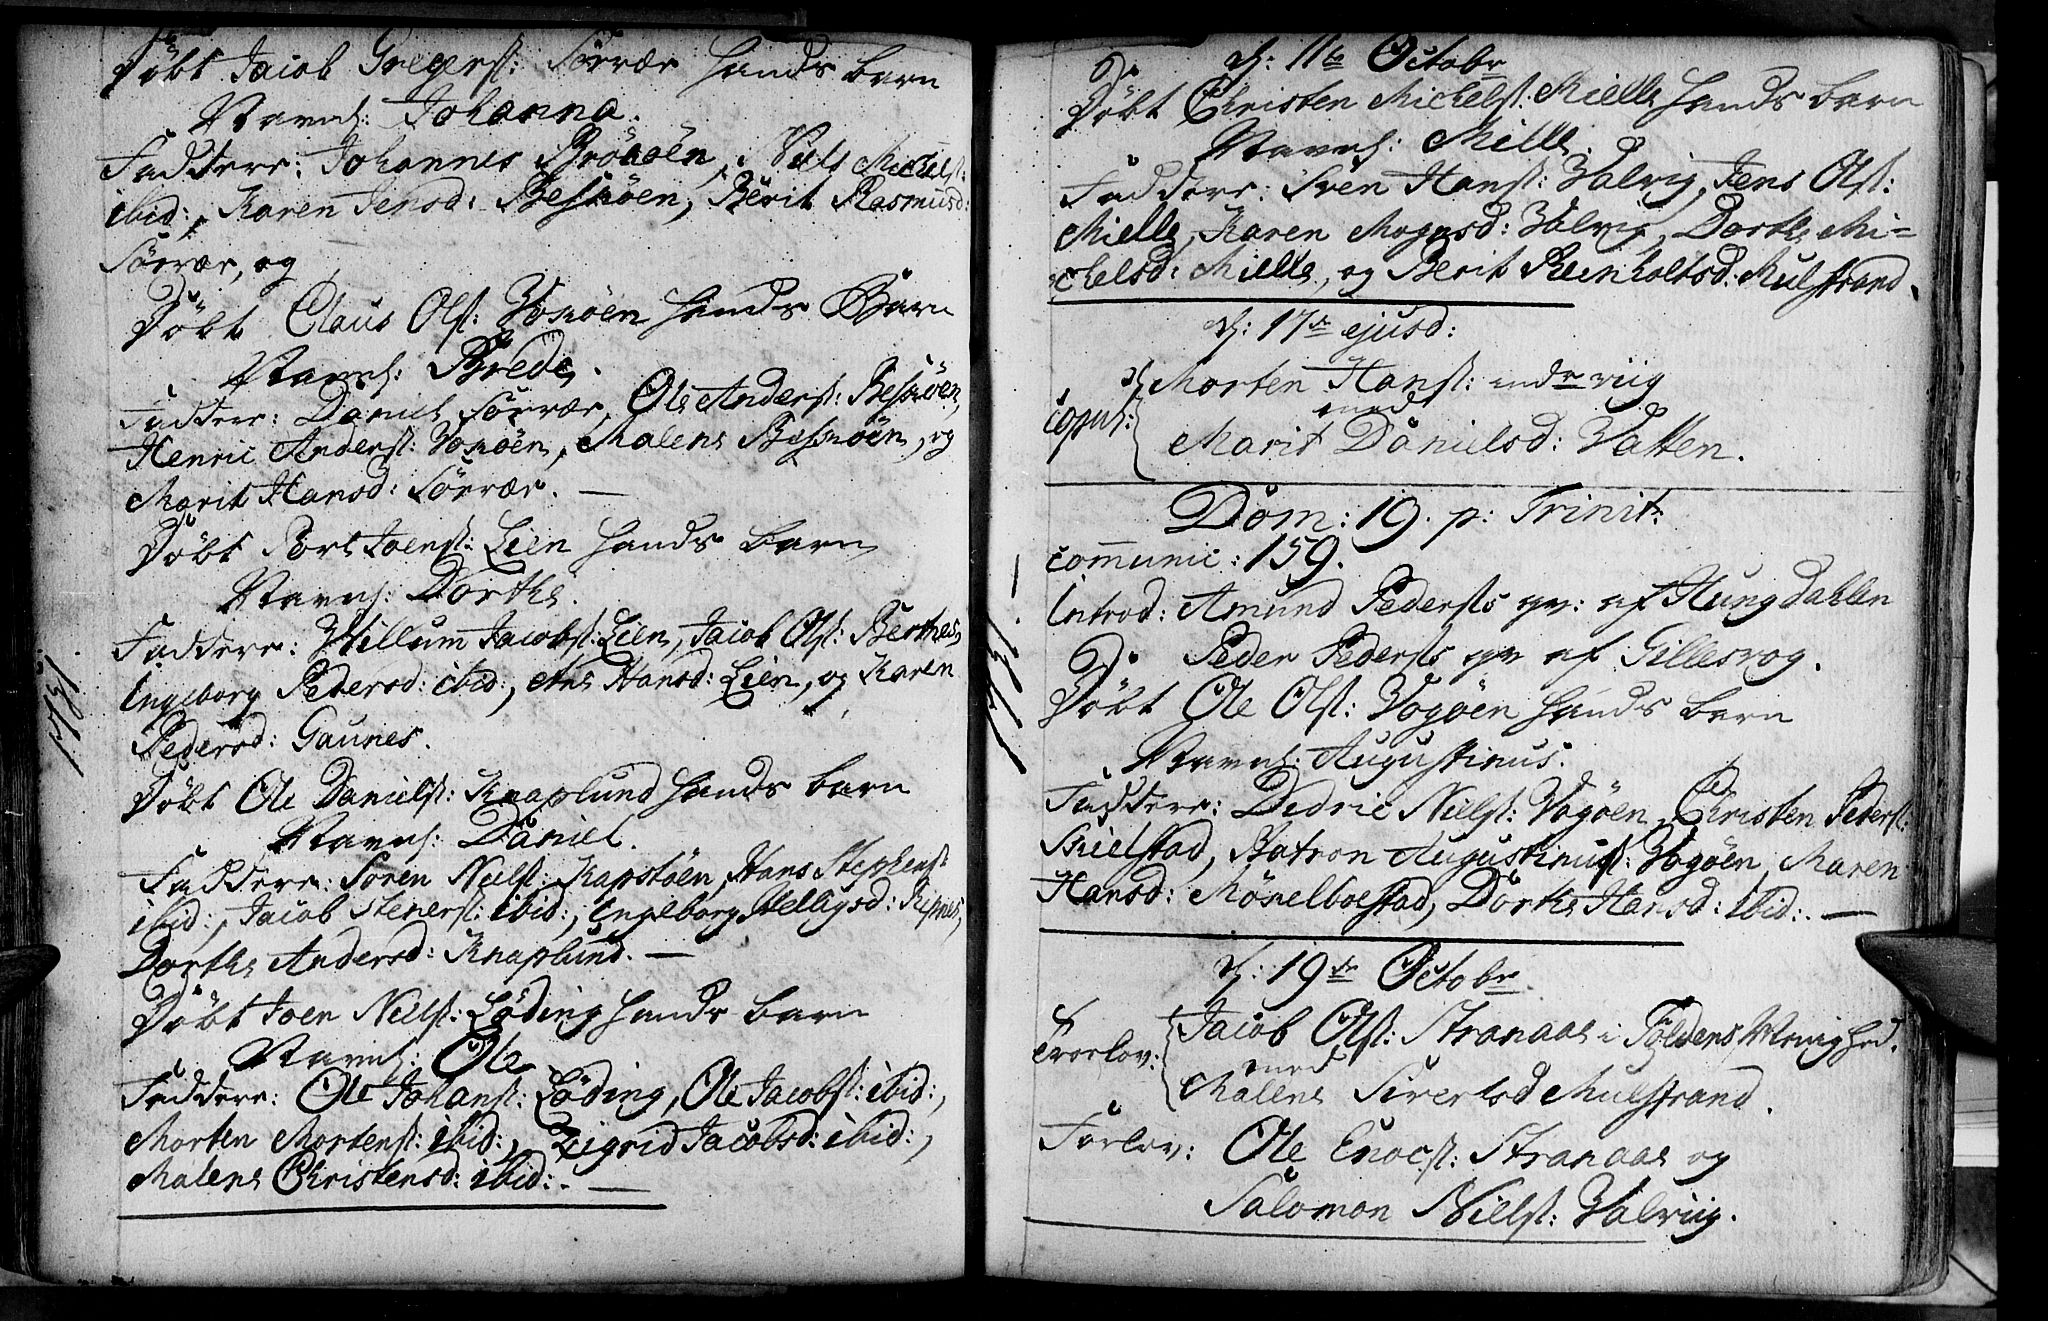 Döbt Jacob Gregerst: Sörvær hands barn
Navnl: Johanna.
Faddere: Johannes Niels Michelst:
ibid:, Karen Jensd: Besköen, Berit Rasmusd:
Sörvær, og
Döbt Claus Olst: hands Barn
Navnl: Brede.
Faddere: Daniel Sörvær, Ole Anderst: Besköen,
Henric Anderst: Malene Besköen, og
Marit Hansd: Sörvær. —
Döbt Joenst: Lien hands barn
Navnl: Dorthe.
Faddere: Willum Jacobst: Lien, Jacob Olst:
Ingeborg Pedersd: ibid:, Ane Hansd: Lien, og Karen
Pedersd: Gaunes.
Döbt Ole Danielst: Knaplund hands barn
Navnl: Daniel.
Faddere: Sören Nielst: Kapstöen, Hans Stephenst:
ibid:, Jacob Stenerst: ibid:, Ingeborg Ellingsd:
Dorthe Andersd: Knaplund. —
Döbt Joen Nielst: Löding hands barn
Navnl: Ole
Faddere: Ole Johanst: Löding, Ole Jacobst: ibid:,
Morten Mortenst: ibid:, Zigrid Jacobsd: ibid:,
Malene Christensd: ibid:. —
d: 11te Octobr
Döbt Christen Michelst: Mielle hands barn
Navnl: Mille.
Faddere: Sven Hanst: Valvig, Jens Olst:
Mielle, Karen Mognsd: Valvig, Dorthe Mi-
chelsd: Mielle, og Berit Reinholtsd: Mulstrand.
d: 17de ejusd:
Morten Hanst:
copul: med
Marit Danielsd: Vatten.
Dom: 19. p: Trinit:
communic: 159.
Introd: Amund Pedersts qv: af Hungdahlen
Peder Pedersts qv af Gillesvog.
Döbt Ole Olst: Vogöen hands barn
Navnl: Augustinus.
Faddere: Didric Nielst: Vogöen, Christen Pederst:
Skielstad, Augustinust: Vogöen, Maren
Hansd: Dorthe Hansd: ibid:. —
d: 19de Octobr
Jacob Olst: Stranaae i Foldens Menighed.
Trorlov: med
Malene Sivertsd Mulstrand.
Forlov: Ole Enocst: Stranaae og
Salomon Nielst: Valviig.